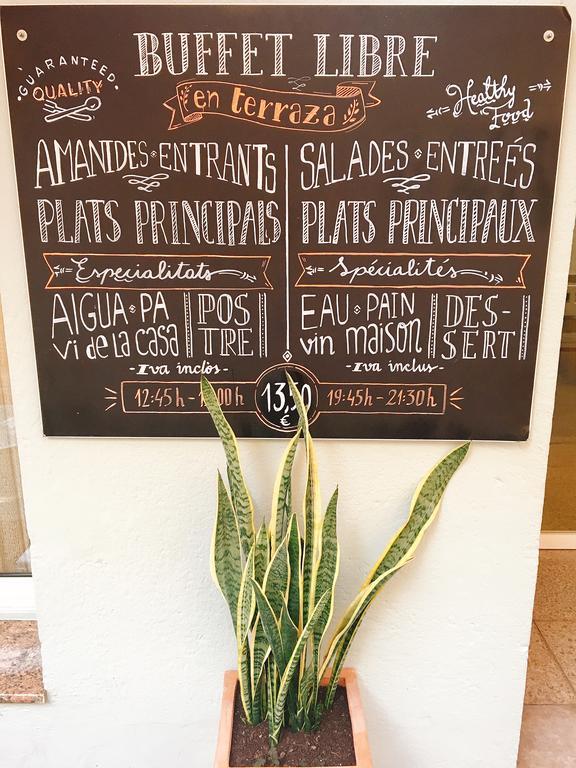 BUFFET LIBRE
GUARANTEED
QUALITY
en terraza
Healthy
Food
AMANIDES · ENTRANTS
PLATS PRINCIPALS
Especialitats
AIGUA · PA
vi de la casa
POS
TRE
-Iva inclòs-
SALADES · ENTREÉS
PLATS PRINCIPAUX
Spécialités
EAU · PAIN
vin maison
DES-
SERT
-Iva inclus-
12:45h -
13,50
€
19:45h - 21:30h